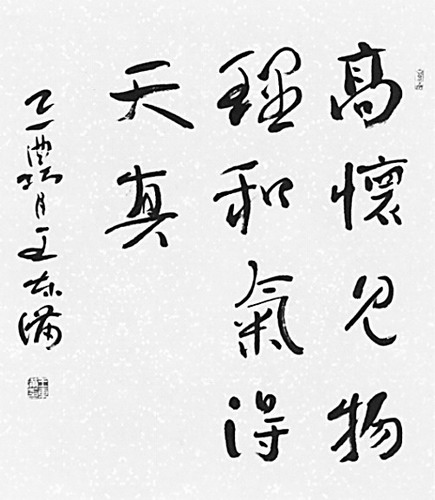 高懷見物
理和氣得
天真
月王東滿